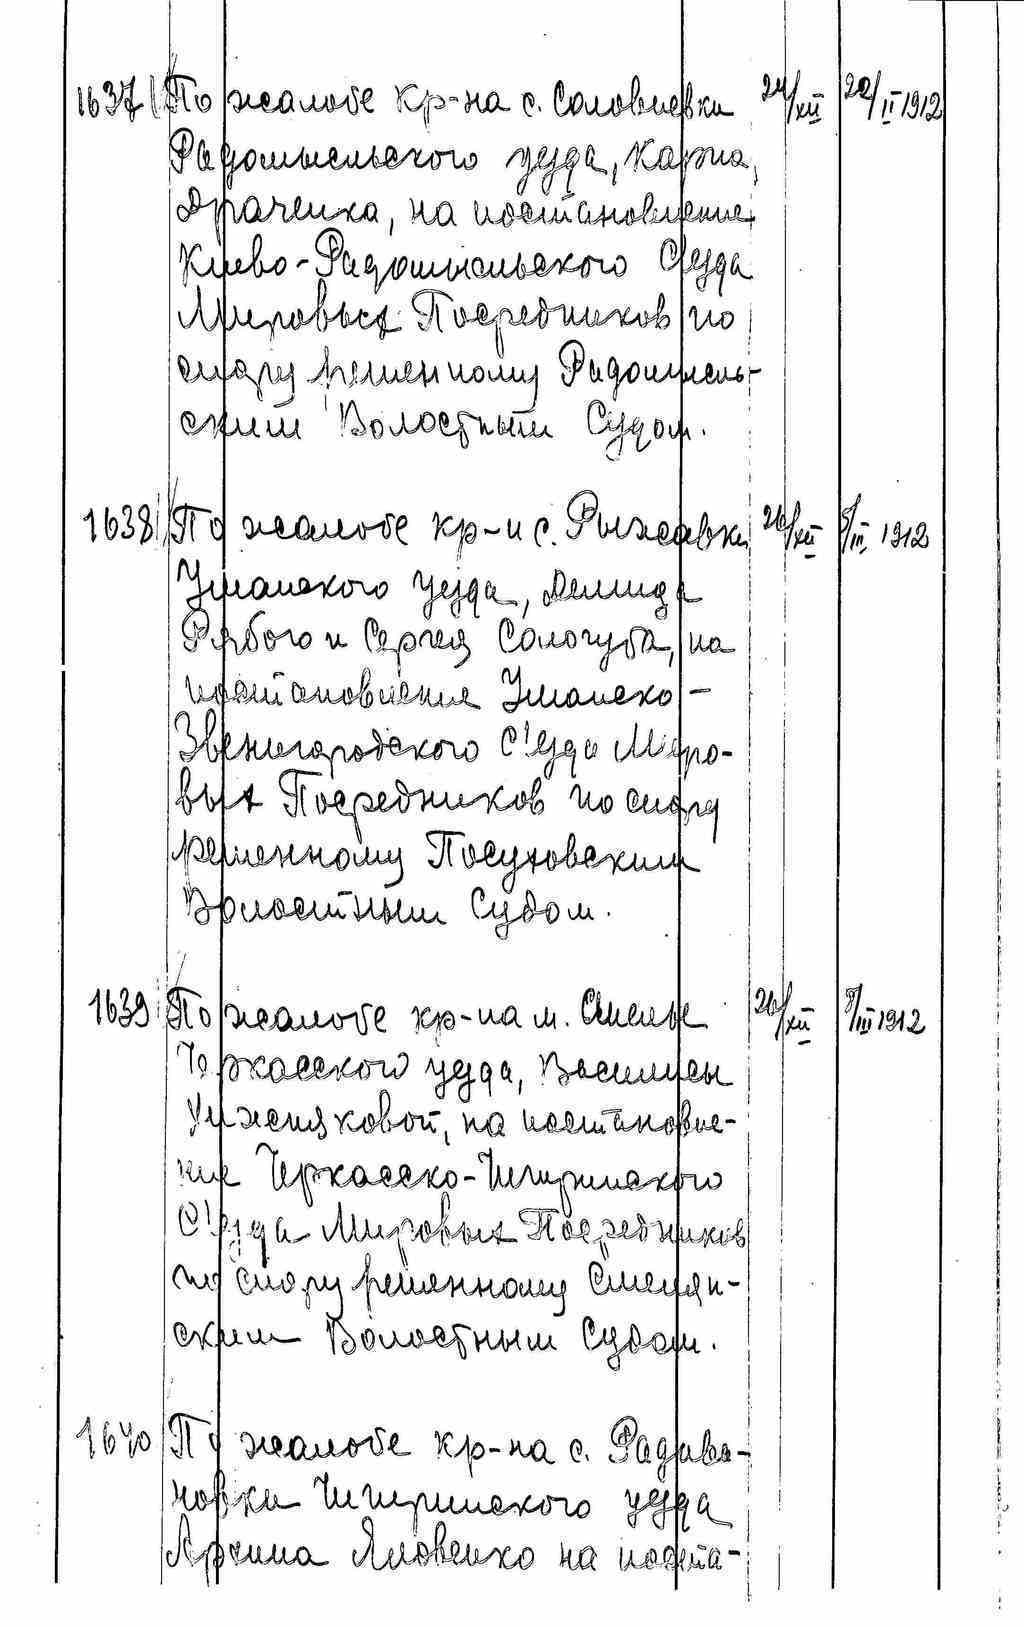 1637 По жалобе кр-на с. Соловиевки 24/XII 22/II 1912
Радомысльского уезда, Карпа
Драченка, на постановление
Киево-Радомысльского С'езда
Мировых Посредников по
спору решенному Радомысль-
ским Волостным Судом.
1638 По жалобе кр-н с. Рыжавки 26/XII 8/III 1912
Уманского уезда, Демида
Рябого и Сергея Сологуба, на
постановление Уманско-
Звенигородского С'езда Миро-
вых Посредников по спору
решенному Посуховским
Волостным Судом.
1639 По жалобе кр-на м. Смелы 26/XII 8/III 1912
Черкасского уезда, Василисы
на постановле-
ние Черкасско-Чигиринского
С'езда Мировых Посредников
по спору решенному Смелян-
ским Волостным Судом.
1640 По жалобе кр-на с. Радива-
новки Чигиринского уезда
Арсима Яковенко на поста-